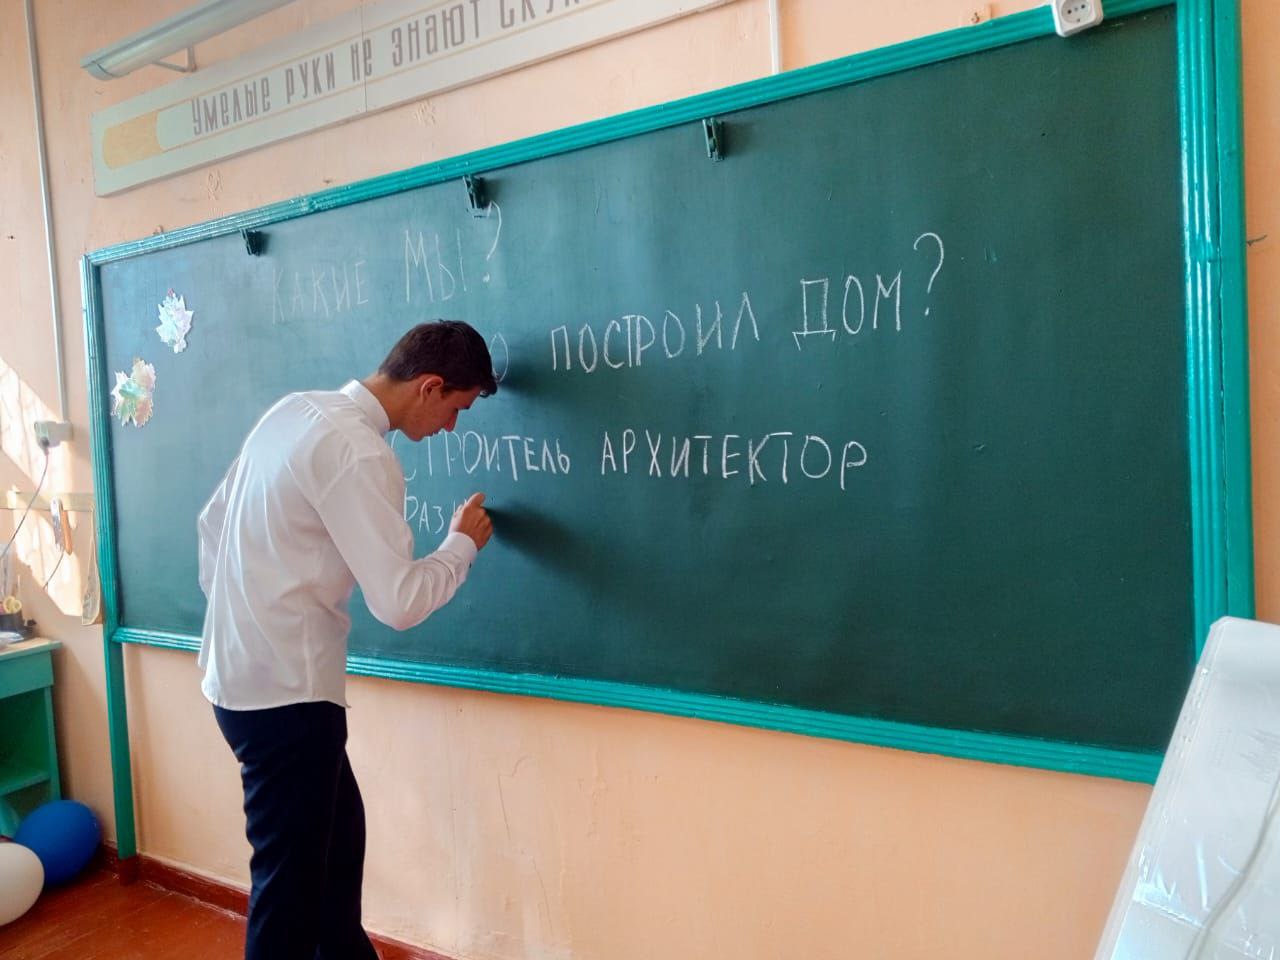 Умелые руки не знают
КАКИЕ МЫ?
ПОСТРОИЛ ДОМ?
СТРОИТЕЛЬ АРХИТЕКТОР